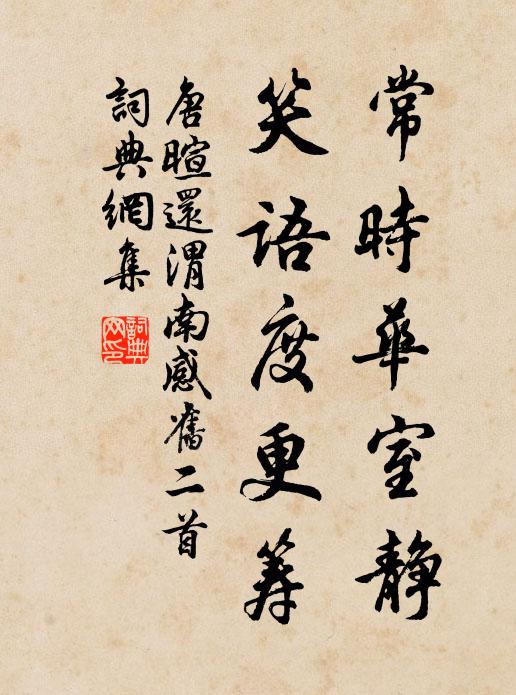 常時華室靜
笑語度更籌
唐暄還渭南感舊二首
詞典網集
詞典
网印